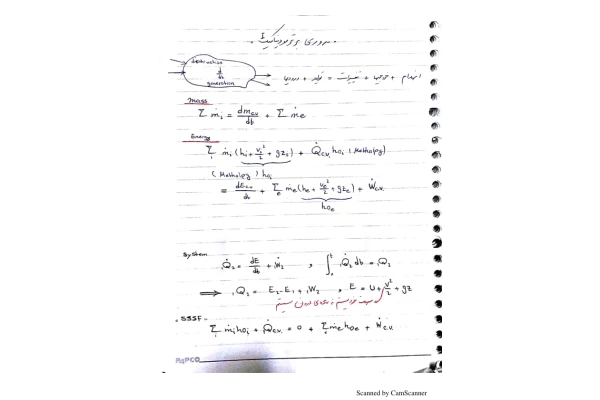 مروری بر ترمودینامیک I
destruction
d/dt
generation
انهدام + خروجی + تغییرات = تولید + ورودی
mass
Σ ṁi = dmcv/dt + Σ ṁe
Energy
Σ ṁi (hi + Vi²/2 + gZi) + Q̇c.v. hoi (Methalpy)
(Methalpy) hoi
= dEc.v./dt + Σe ṁe (he + Ve²/2 + gZe) + Ẇc.v.
hoe
System
₁Q̇₂ = dE/dt + ₁Ẇ₂ , ∫₀ᵗ ₁Q̇₂ dt = ₁Q₂
⟹ ₁Q₂ = E₂ - E₁ + ₁W₂ , E = U + V²/2 + gz
انرژی درونی سیستم
. SSSF -
Σ ṁi hoi + Q̇c.v. = 0 + Σ ṁe hoe + Ẇc.v.
PAPCO
Scanned by CamScanner